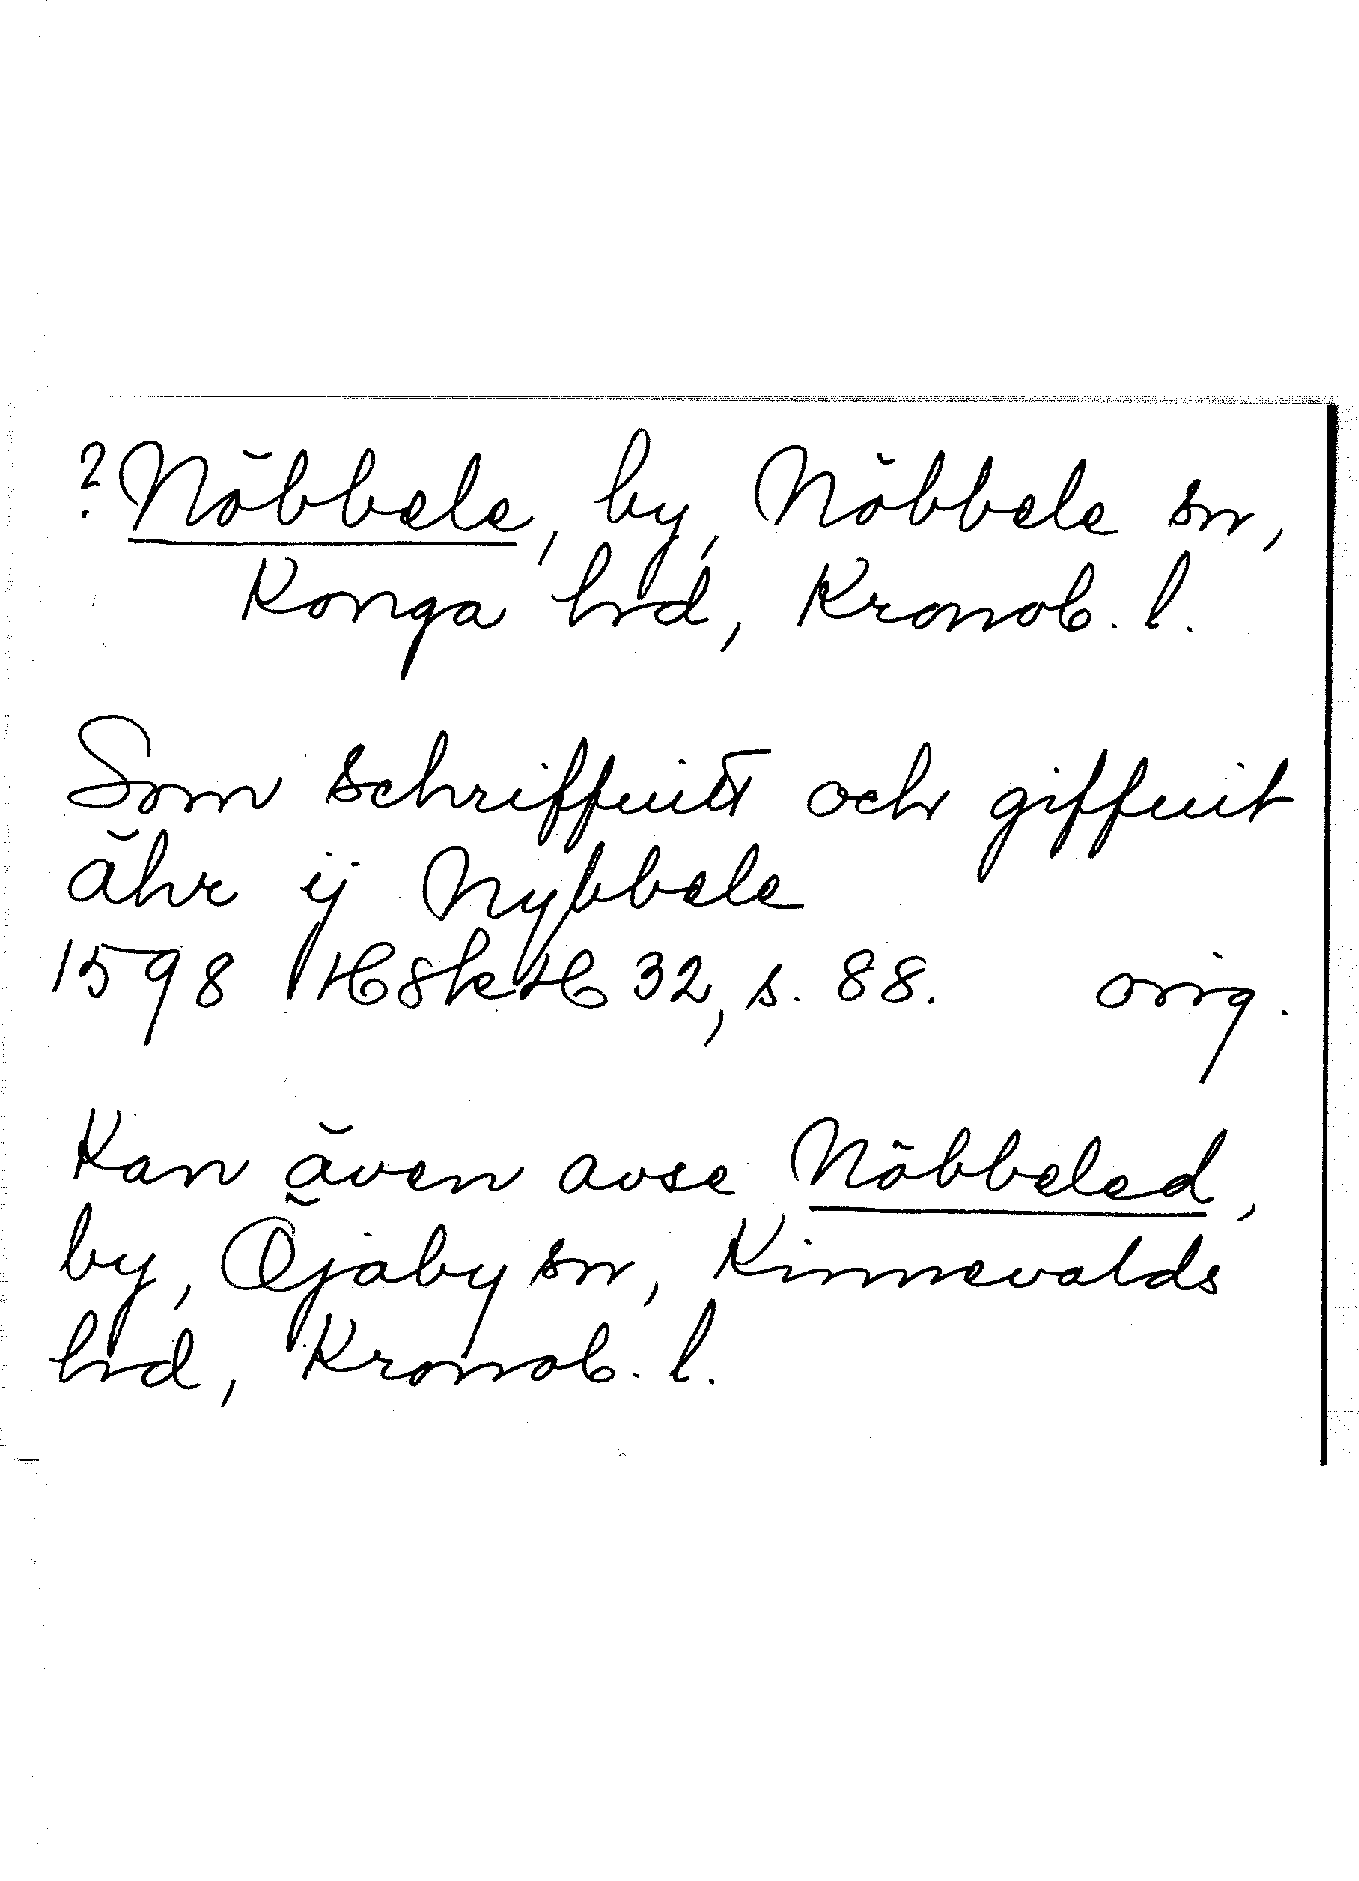 ? Nöbbele, by, Nöbbele sn,
Konga hrd, Kronob. l.
Som schriffuitt och giffuit
ähr ij Nybbele
1598 HSkH 32, s. 88. orig.
Kan även avse Nöbbeled,
by, Öjaby sn, Kinnevalds
hrd, Kronob. l.